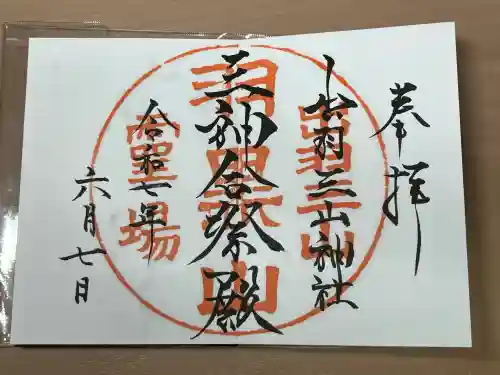 奉拝
出羽三山神社
出羽三山
三神合祭殿
羽黒山
令和七年
六月七日